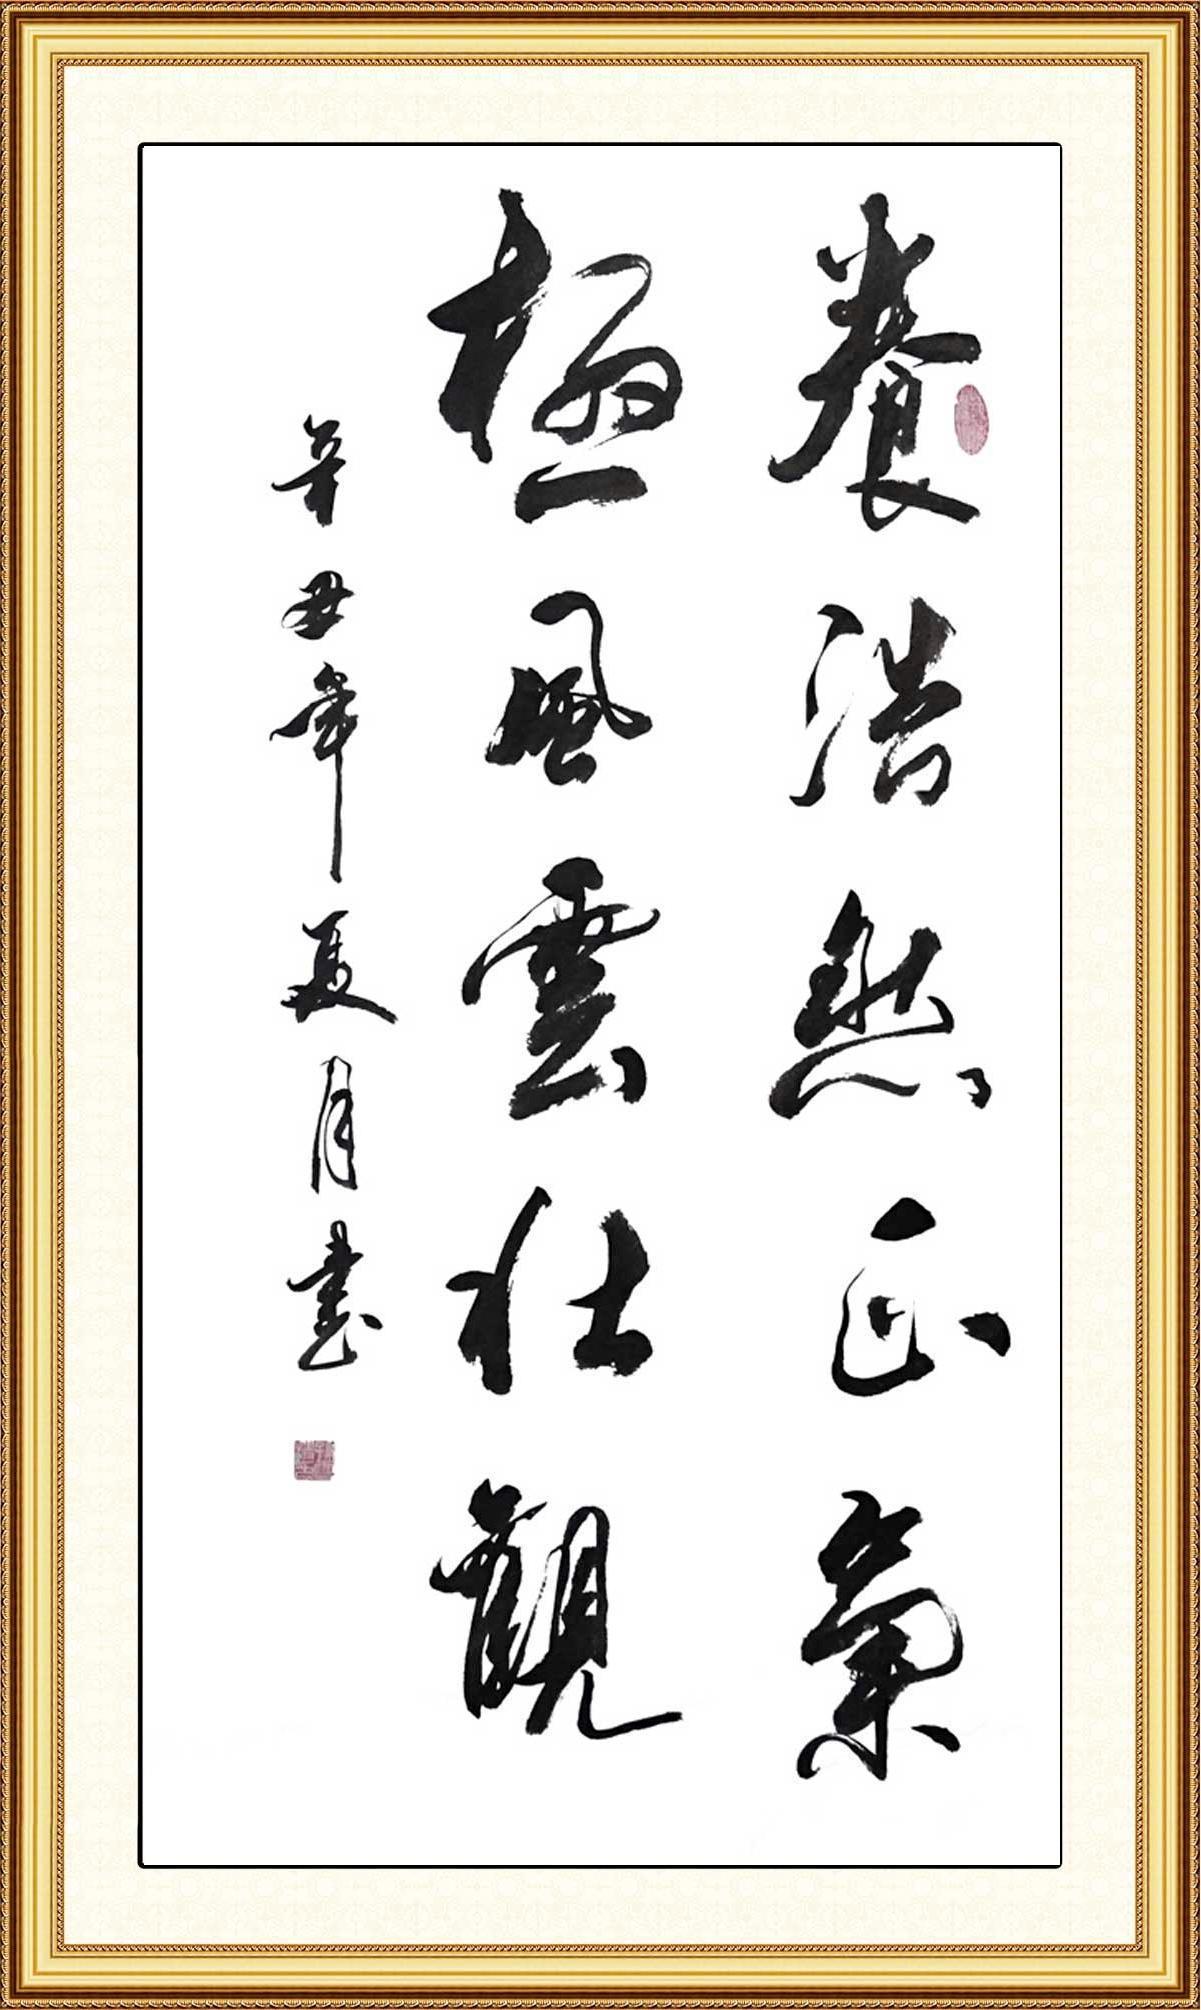 養浩然正氣
極風雲壮觀
辛丑年夏月書